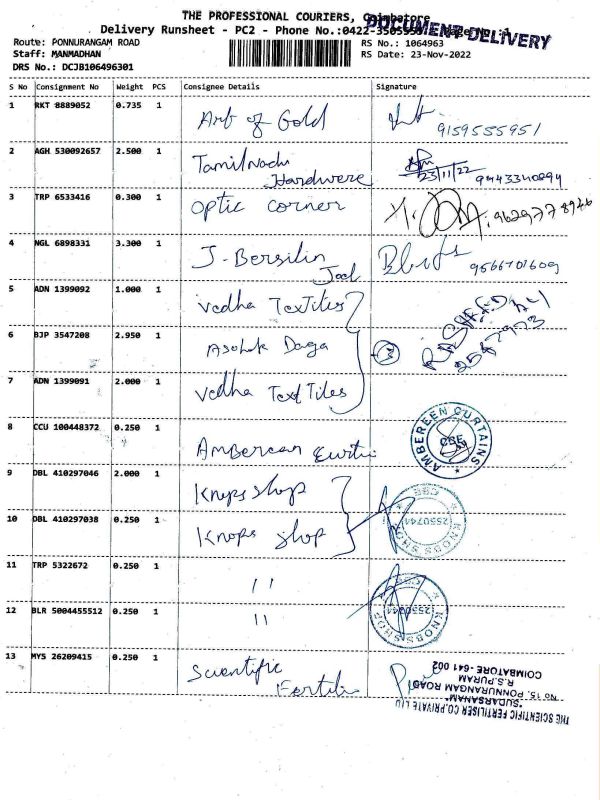 THE PROFESSIONAL COURIERS, Coimbatore
Delivery Runsheet - PC2 - Phone No.:0422-
DOCUMENT DELIVERY
Route: PONNURANGAM ROAD
RS No.: 1064963
Staff: MANMADHAN
RS Date: 23-Nov-2022
DRS No.: DCJB106496301
S No Consignment No Weight PCS Consignee Details Signature
1 RKT 8889052 0.735 1 Art of Gold 9159555951
2 AGH 530092657 2.500 1 Tamilnadu Hardwere 23/11/22
3 TRP 6533416 0.300 1 optic corner
4 NGL 6898331 3.300 1 J-Bersilin Joel 9566701609
5 ADN 1399092 1.000 1 vedha TexTiles
6 BJP 3547208 2.950 1 Asohk Daga 3
7 ADN 1399091 2.000 1 vedha TextTiles
8 CCU 100448372 0.250 1 Ambereen
AMBEREEN CURTAINS
CBE
9 DBL 410297046 2.000 1 Knops shop
10 DBL 410297038 0.250 1 Knops shop
KNOBS SHOP
2550744
CBE
11 TRP 5322672 0.250 1 11
12 BLR 5004455512 0.250 1 11
KNOBS SHOP
2550744
CBE
13 MYS 26209415 0.250 1 Scientific
THE SCIENTIFIC FERTILISER CO.PRIVATE LTD
"SUDARSANAM"
No. 15, PONNURANGAM ROAD
R.S.PURAM
COIMBATORE - 641 002